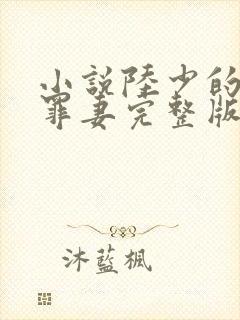 小說陸少的
罪妻完整版
沐藍楓